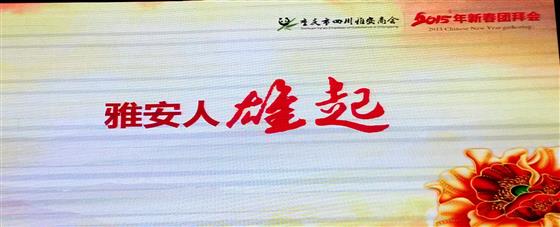 重庆市四川雅安商会
Sichuan Ya'an Chamber of Commerce in Chongqing
2015年新春团拜会
2015 Chinese New Year gathering
雅安人雄起